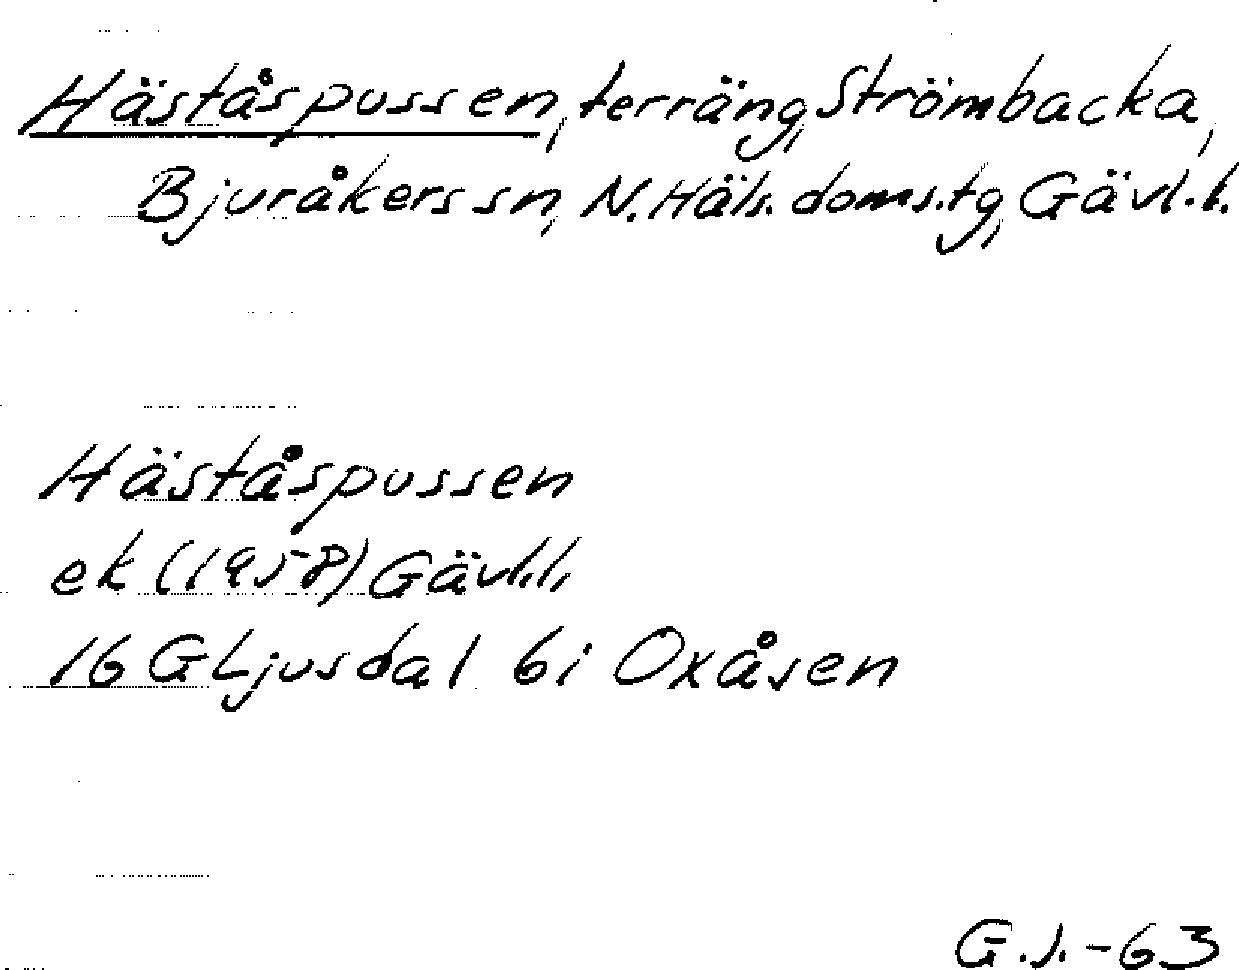 Häståspussen, terräng, Strömbacka,
Bjuråkers sn, N. Häls. doms.tg, Gävl.l.
Häståspussen
ek (1958) Gävl.l.
16 G Ljusdal 6i Oxåsen
G.J.-63